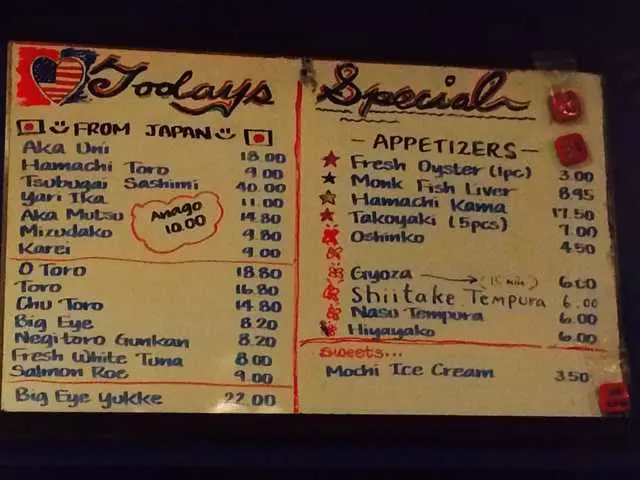 Todays Special
FROM JAPAN
Aka Uni 18.00
Hamachi Toro 9.00
Tsubugai Sashimi 40.00
Yari Ika 11.00
Aka Mutsu 14.80
Mizudako 9.80
Karei 9.00
Anago
10.00
O Toro 18.80
Toro 16.80
Chu Toro 14.80
Big Eye 8.20
Negitoro Gunkan 8.20
Fresh White Tuna 8.00
Salmon Roe 9.00
Big Eye Yukke 22.00
- APPETIZERS -
Fresh Oyster (1pc) 3.00
Monk Fish Liver 8.95
Hamachi Kama 17.50
Takoyaki (5pcs) 7.00
Oshinko 4.50
Gyoza (15 min) 6.00
Shiitake Tempura 6.00
Nasu Tempura 6.00
Hiyayako 6.00
Sweets...
Mochi Ice Cream 3.50